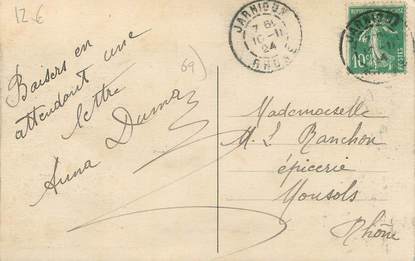 12.6
69)
Baisers en
attendant une
lettre
Anna Dumas
JARNIOUX
10-11
24
RHONE
10c
POSTES
Mademoiselle
M. L. Ranchon
épicerie
Monsols
Rhône